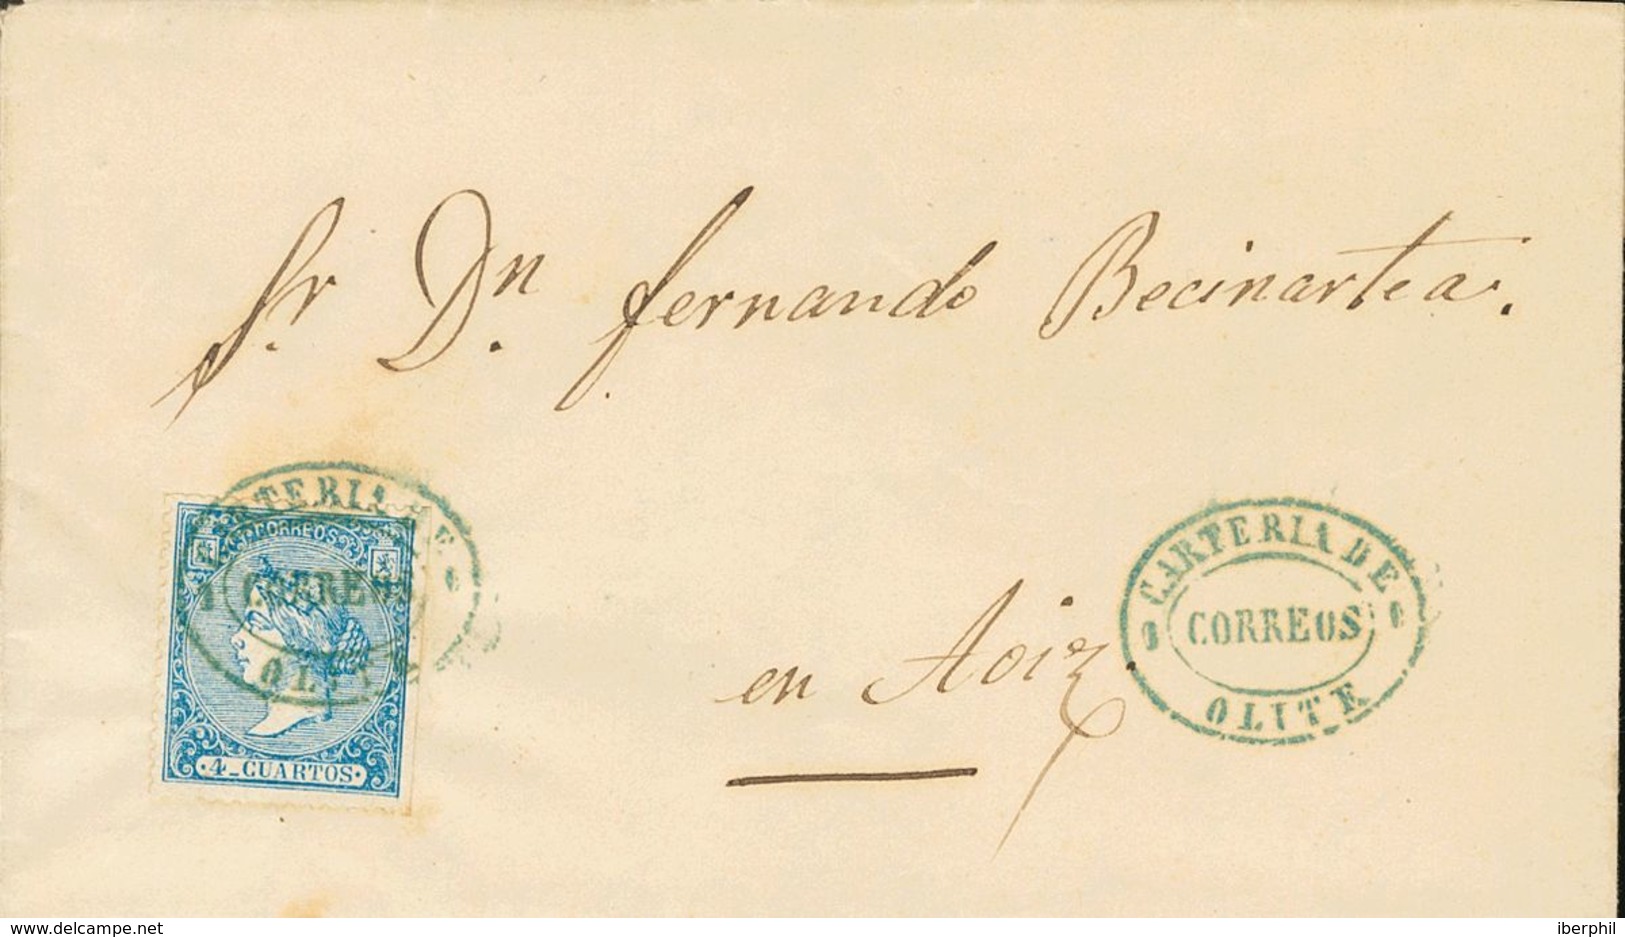 Sr. Dn. fernando Becinartea.
CARTERIA DE
CORREOS
OLITE
CORREOS
4 CUARTOS
en Aoiz.
CARTERIA DE
CORREOS
OLITE
delcampe.net
iberphil